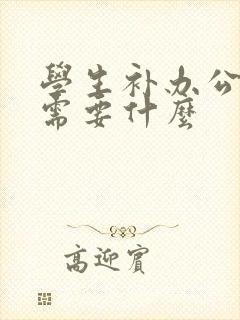 學生补办公
需要什麽
高迎賓